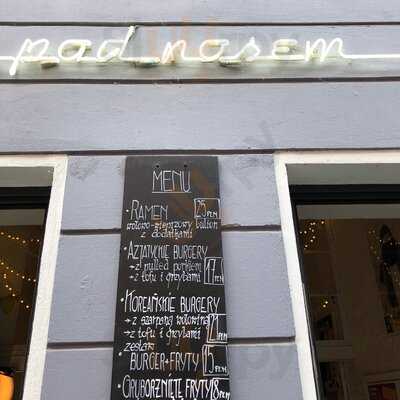 pod nosem
MENU
• RAMEN 25 PLN
wołowo-wieprzowy bulion
z dodatkami
• AZJATYCKIE BURGERY
→ z pulled porkiem 17 PLN
→ z tofu i grzybami
• KOREAŃSKIE BURGERY
→ z szarpaną wołowiną 21 PLN
→ z tofu i grzybami
zestaw
BURGER+FRYTY 15 PLN
• GRUBORZNIĘTE FRYTY 8 PLN